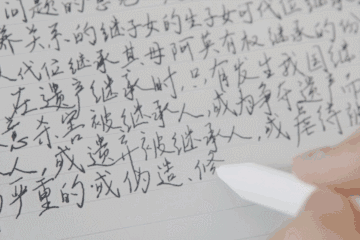 问题的意见
养关系的继子女的生子女可代位继承
代位继承其母阿英有权继承的份
在遗产继承时,只有发生我国继
意杀害被继承人,或为争夺遗产而
人,或遗弃被继承人,或虐待被
严重的,或伪造、修